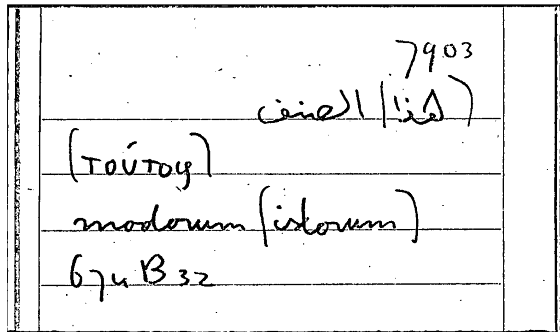 7903
(هذا) الصنف
(τούτου)
modorum (istorum)
674 B 32